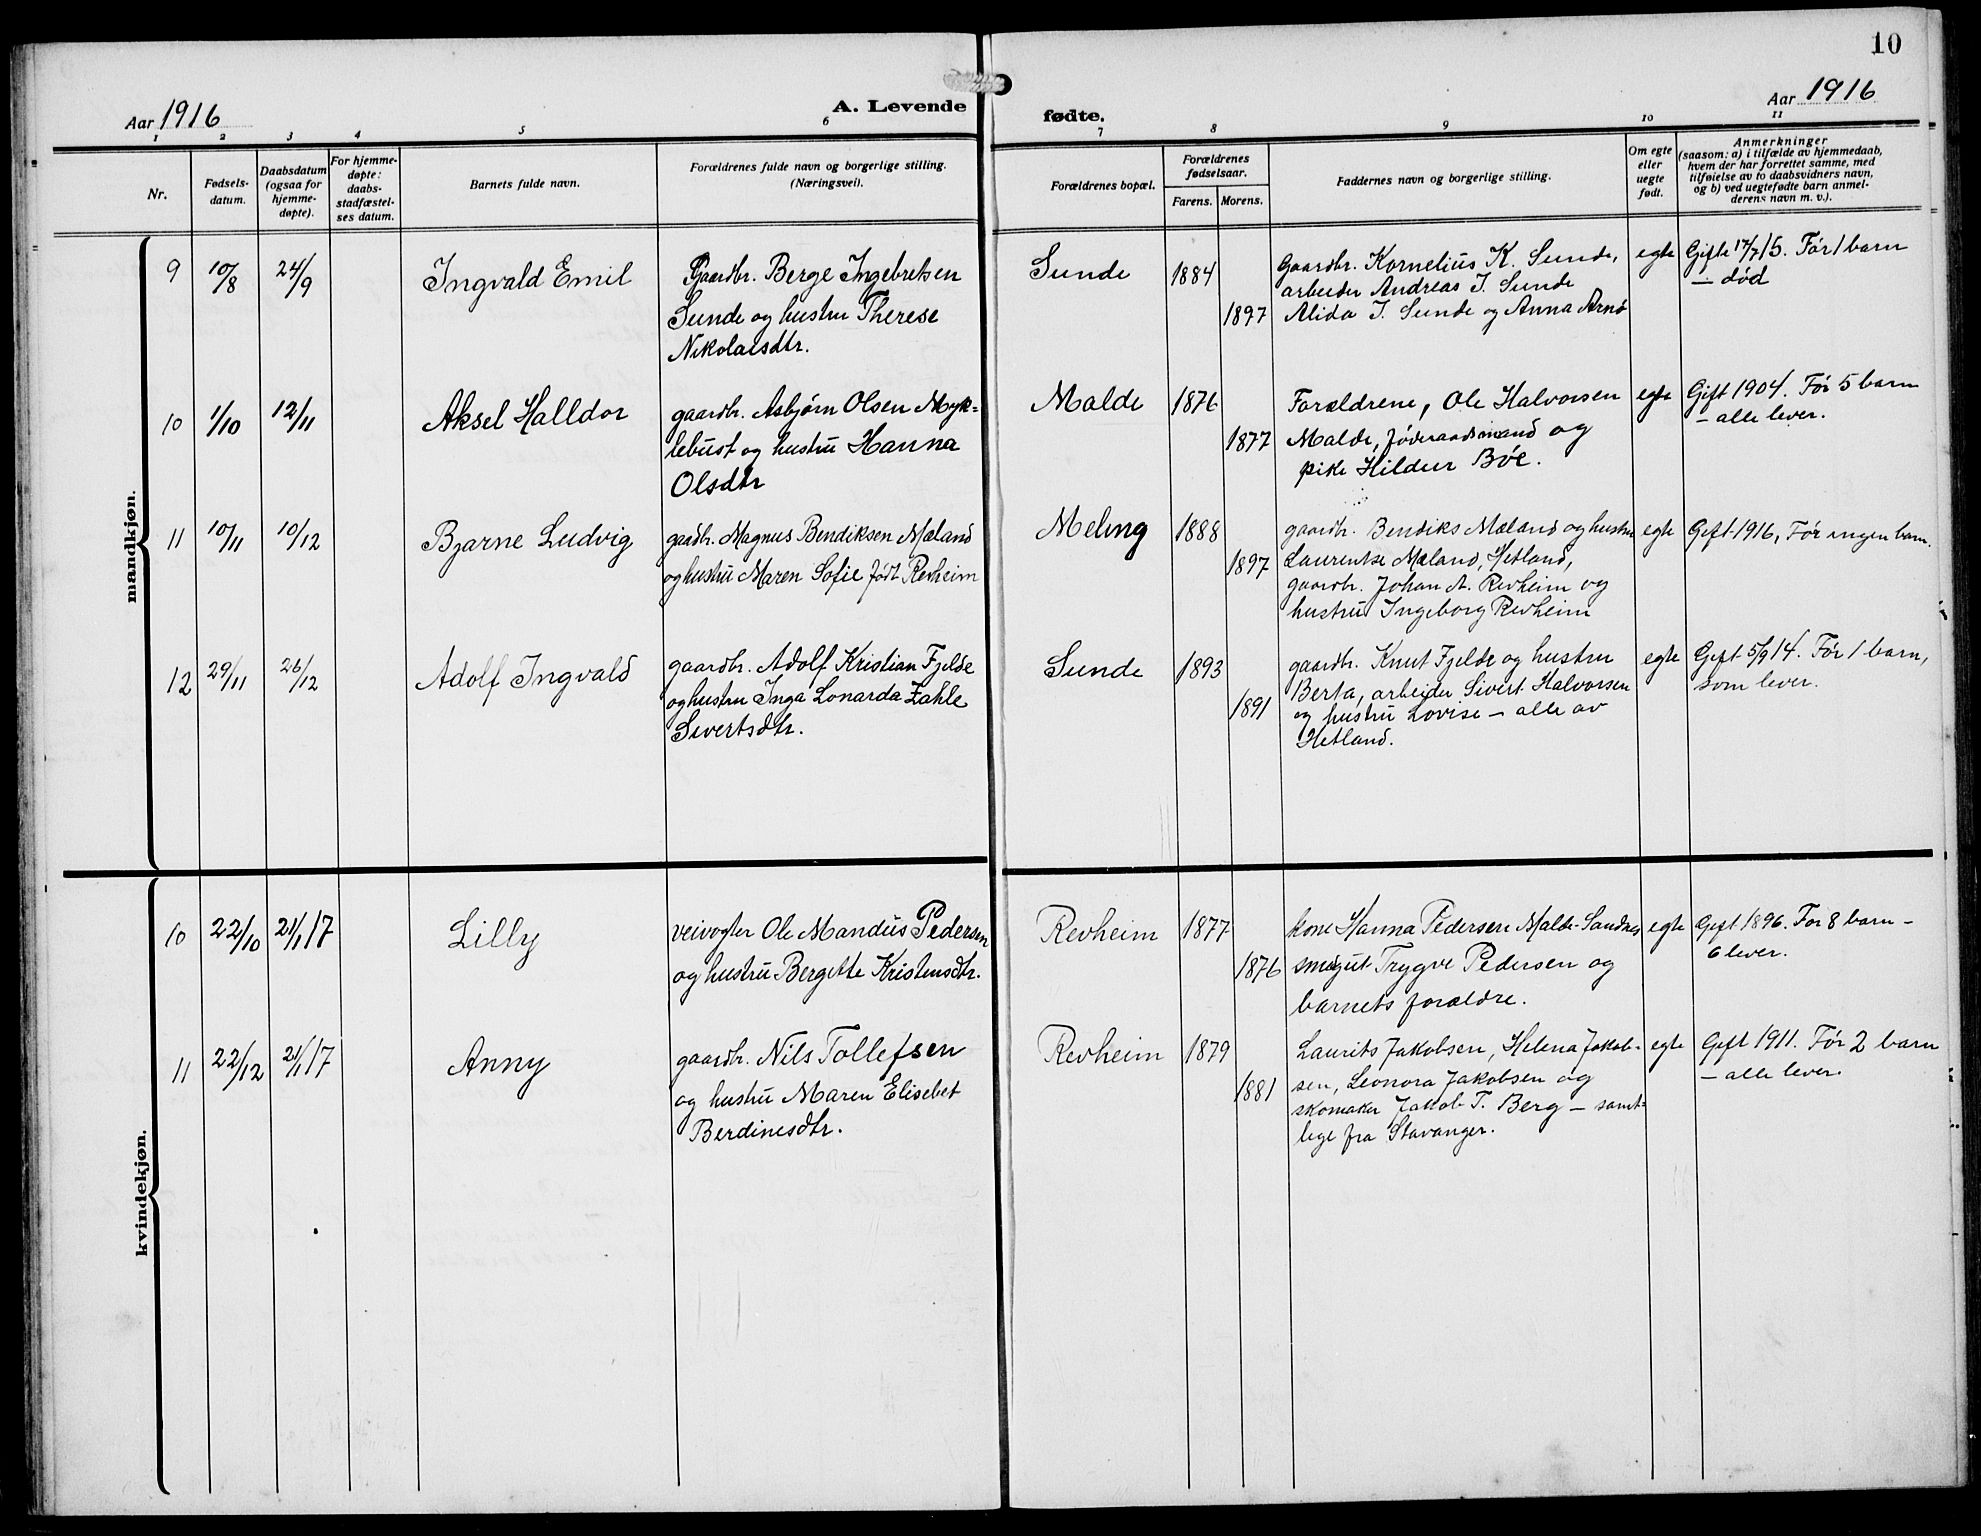 10
Aar 1916
A. Levende
fødte.
Aar 1916
1 2 3 4 5 6 7 8 9 10 11
Nr.
Fødsels-
datum.
Daabsdatum
(ogsaa for
hjemme-
døpte).
For hjemme-
døpte:
daabs-
stadfæstel-
ses datum.
Barnets fulde navn.
Forældrenes fulde navn og borgerlige stilling.
(Næringsvei).
Forældrenes bopæl.
Forældrenes
fødselsaar.
Farens. Morens.
Faddernes navn og borgerlige stilling.
Om egte
eller
uegte
født.
Anmerkninger
(saasom: a) i tilfælde av hjemmedaab,
hvem der har forrettet samme, med
tilføielse av to daabsvidners navn,
og b) ved uegtefødte barn anmel-
derens navn m. v.).
mandkjøn.
9 10/8 24/9 Ingvald Emil
Gaardbr. Berge Ingebretsen
Sunde og hustru Therese
Nikolaisdtr.
Sunde 1884
1897
Gaardbr. Kornelius K. Sunde,
arbeider Andreas J. Sunde
Alida J. Sunde og Anna Arnø
egte
Gifte 17/7 15. Før 1 barn
— død
10 1/10 12/11 Aksel Halldor
gaardbr. Asbjørn Olsen Myk-
lebust og hustru Hanna
Olsdtr
Malde 1876
1877
Forældrene, Ole Halvorsen
Malde, føderaadsmand og
pike Hildur Bøe.
egte
Gift 1904. Før 5 barn
— alle lever.
11 10/11 10/12 Bjarne Ludvig
gaadbr. Magnus Bendiksen Mæland
og hustru Maren Sofie født Revheim
Meling 1888
1897
gaardbr. Bendiks Mæland og hustru
Laurentse Mæland, Hetland,
gaardbr. Johan A. Revheim og
hustru Ingeborg Revheim
egte
Gift 1916, Før ingen barn.
12 29/11 26/12 Adolf Ingvald
gaardbr. Adolf Kristian Fjelde
og hustru Inga Lonarda Zahle
Sivertsdtr.
Sunde 1893
1891
gaardbr. Knut Fjelde og hustru
Berta, arbeider Sivert Halvorsen
og hustru Lovise — alle av
Hetland.
egte
Gift 5/9 14. Før 1 barn,
som lever.
kvindekjøn.
10 22/10 21/1 17 Lilly
veivogter Ole Mandus Pedersen
og hustru Bergitte Kristensdtr.
Revheim 1877
1876
kone Hanna Pedersen Malde-Sandnes
smågut Trygve Pedersen og
barnets forældre.
egte
Gift 1896. Før 8 barn —
6 lever.
11 22/12 21/1 17 Anny
gaardbr. Nils Tollefsen
og hustru Maren Elisebet
Berdinesdtr.
Revheim 1879
1881
Laurits Jakobsen, Helena Jakob-
sen, Leonora Jakobsen og
skomaker Jakob T. Berg — samt-
lige fra Stavanger.
egte
Gift 1911. Før 2 barn
— alle lever.